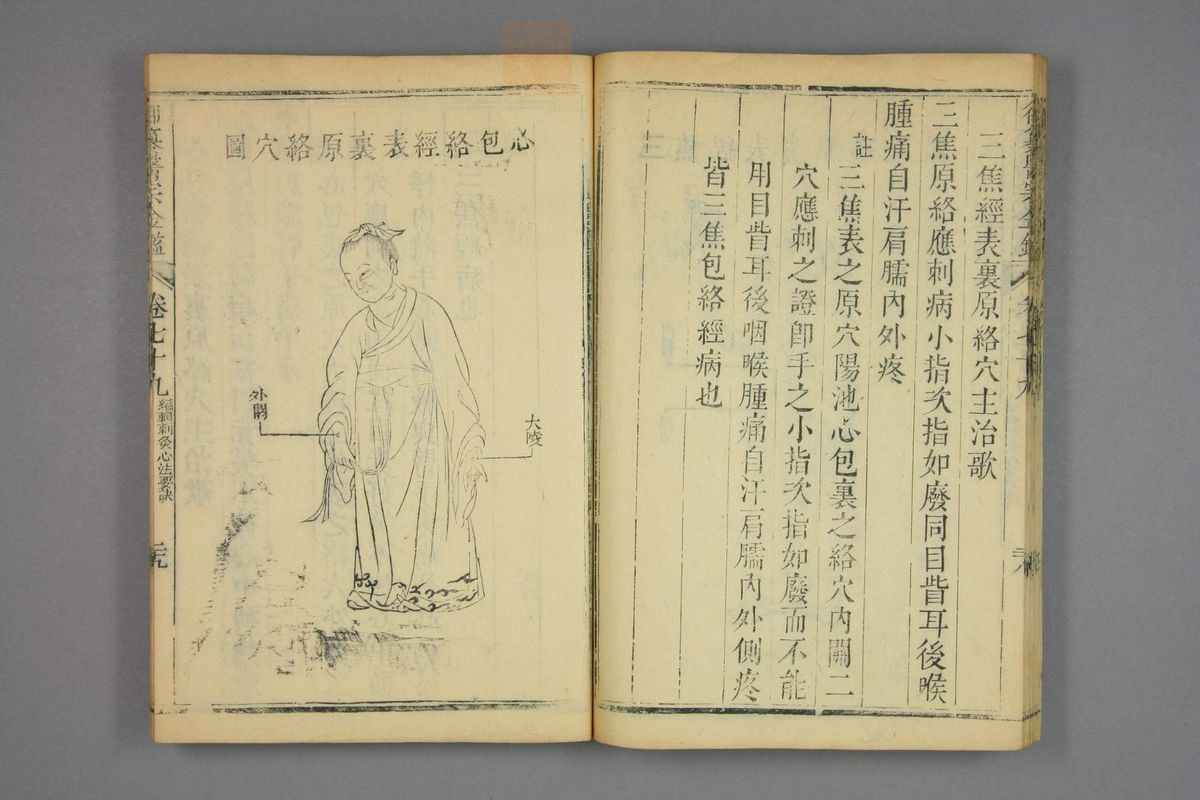 三焦經表裏原絡穴主治歌
三焦原絡應刺病小指次指如廢同目眥耳後喉
腫痛自汗肩臑內外疼
註三焦表之原穴陽池心包裏之絡穴內關二
穴應刺之證卽手之小指次指如廢而不能
用目眥耳後咽喉腫痛自汗肩臑內外側疼
皆三焦包絡經病也
心包絡經表裏原絡穴圖
大陵
外關
醫宗金鑑
卷七十九
編輯刺灸心法要訣
三九